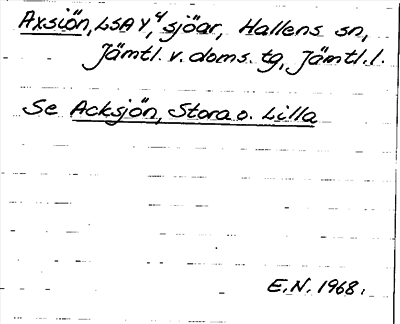 Axsiön, LSA Y⁴, sjöar, Hallens sn,
Jämtl. v. doms. tg, Jämtl. l.
Se Acksjön, Stora o. Lilla
E.N. 1968.